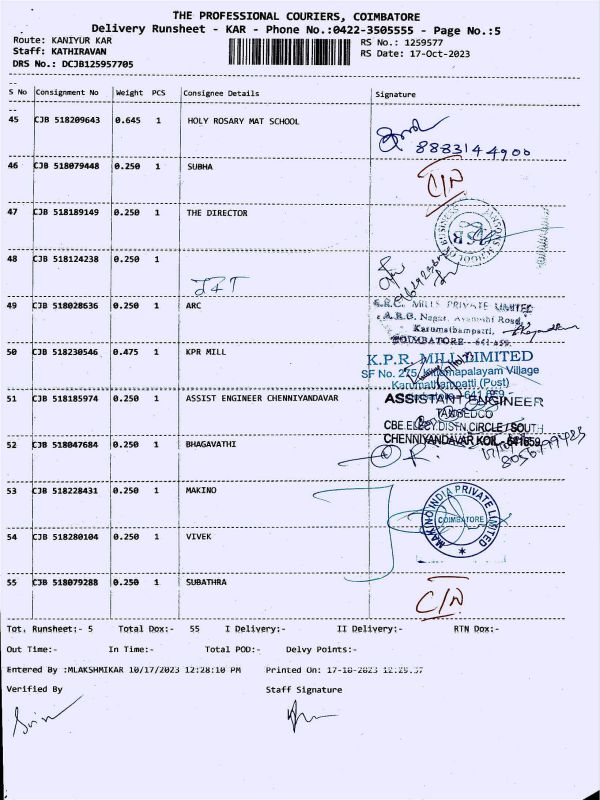 THE PROFESSIONAL COURIERS, COIMBATORE
Delivery Runsheet - KAR - Phone No.:0422-3505555 - Page No.:5
Route: KANIYUR KAR
RS No.: 1259577
Staff: KATHIRAVAN
RS Date: 17-Oct-2023
DRS No.: DCJB125957705
S No Consignment No Weight PCS Consignee Details Signature
45 CJB 518209643 0.645 1 HOLY ROSARY MAT SCHOOL
8883144900
46 CJB 518079448 0.250 1 SUBHA
C/N
47 CJB 518189149 0.250 1 THE DIRECTOR
48 CJB 518124238 0.250 1
49 CJB 518028636 0.250 1 ARC
MILLS PRIVATE LIMITED
Karumathampatti,
COIMBATORE - 641 659.
50 CJB 518230546 0.475 1 KPR MILL
K.P.R. MILL LIMITED
SF No. 275, Kittampalayam Village
Karumathampatti (Post)
51 CJB 518185974 0.250 1 ASSIST ENGINEER CHENNIYANDAVAR
ASSISTANT ENGINEER
TANGEDCO
CBE ELECY.DISTN.CIRCLE / SOUTH
CHENNIYANDAVAR KOIL - 641659
52 CJB 518047684 0.250 1 BHAGAVATHI
53 CJB 518228431 0.250 1 MAKINO
MAKINO INDIA PRIVATE LIMITED
COIMBATORE
54 CJB 518280104 0.250 1 VIVEK
55 CJB 518079288 0.250 1 SUBATHRA
C/N
Tot. Runsheet:- 5 Total Dox:- 55 I Delivery:- II Delivery:- RTN Dox:-
Out Time:- In Time:- Total POD:- Delvy Points:-
Entered By :MLAKSHMIKAR 10/17/2023 12:28:10 PM Printed On: 17-10-2023 12:29:37
Verified By Staff Signature